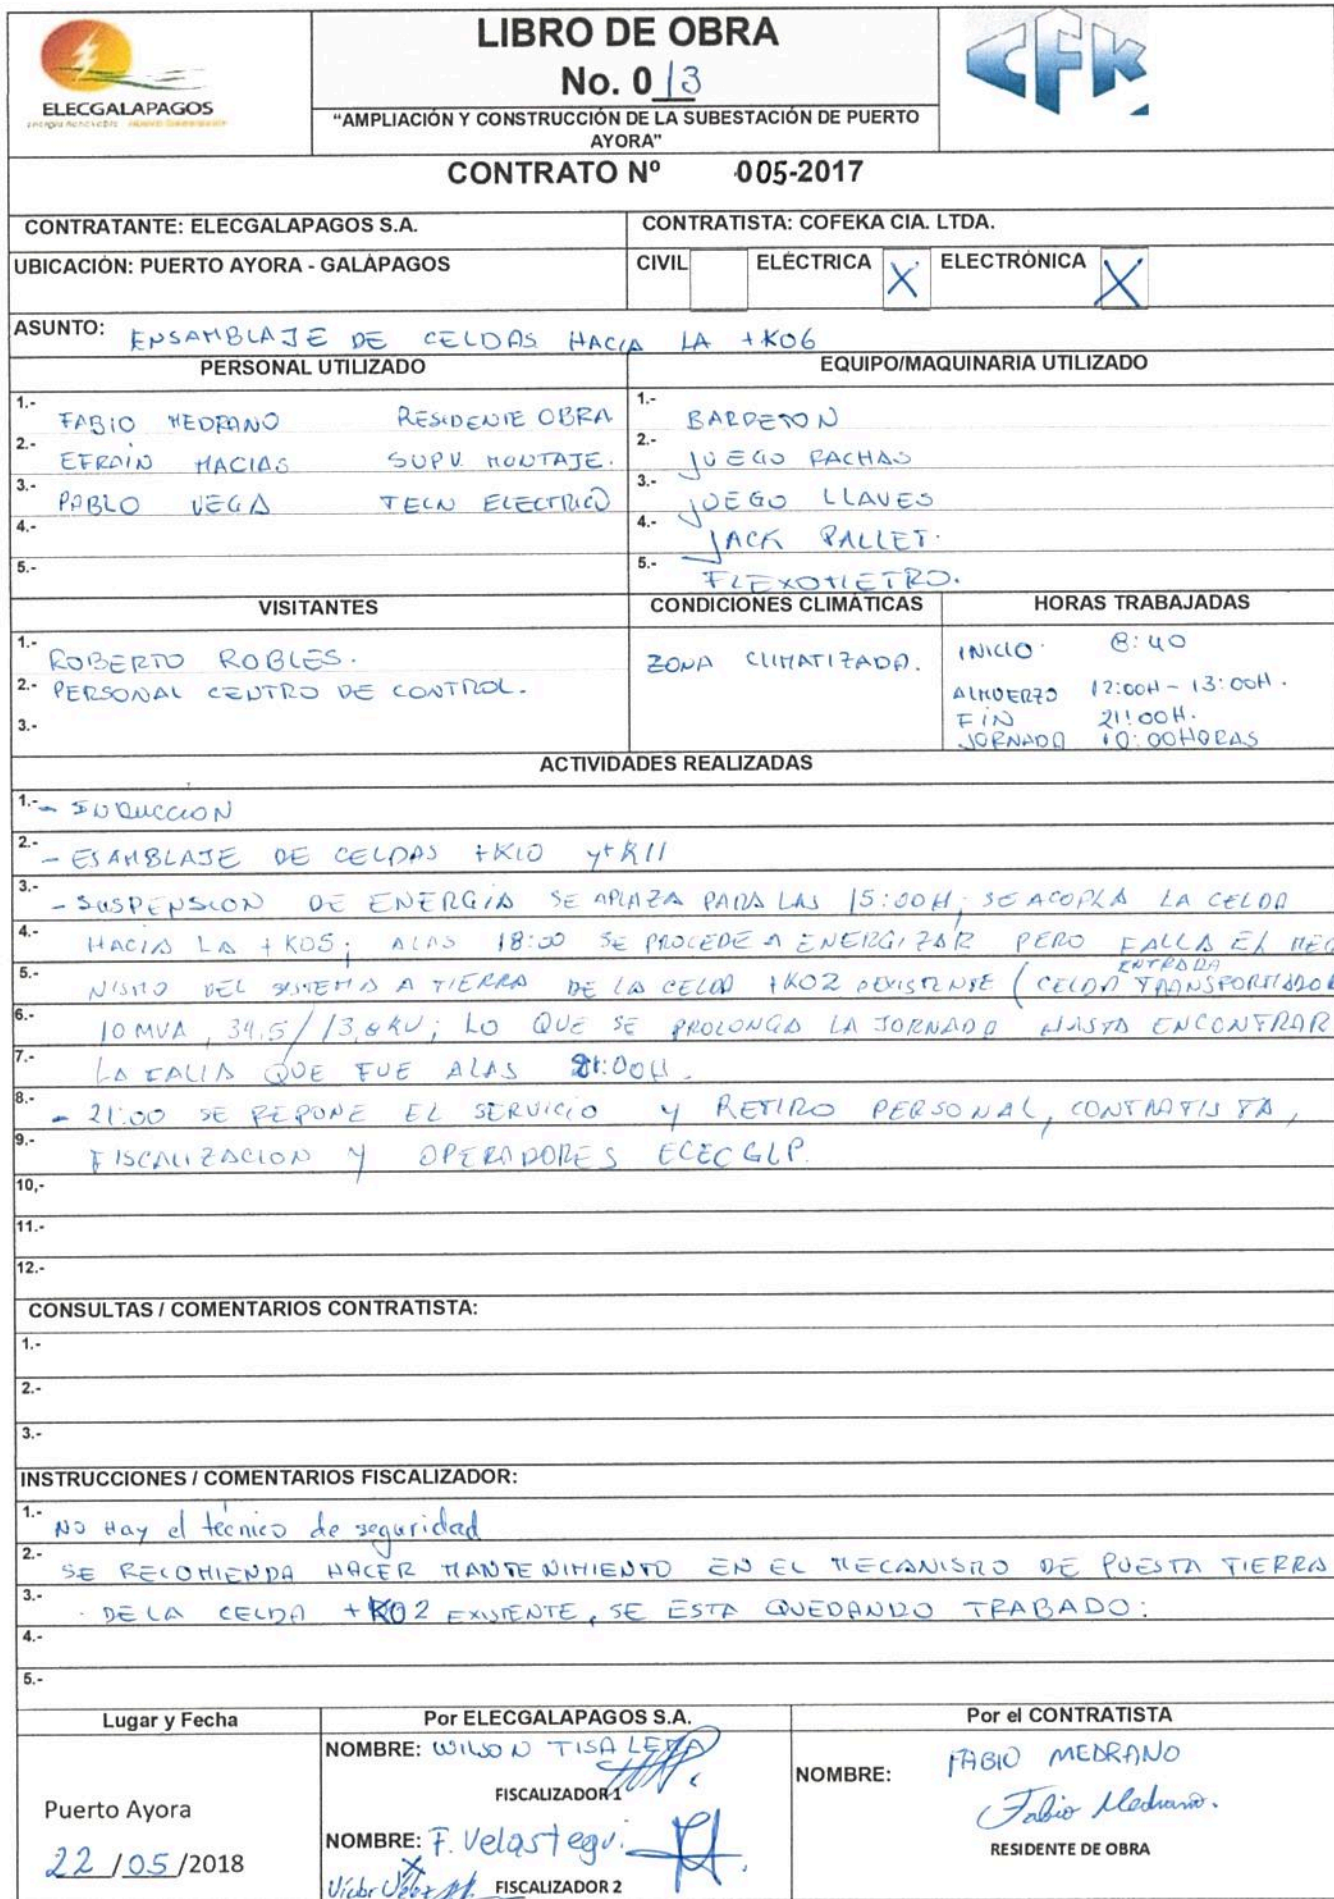 ELECGALAPAGOS
LIBRO DE OBRA
No. 013
"AMPLIACIÓN Y CONSTRUCCIÓN DE LA SUBESTACIÓN DE PUERTO
AYORA"
CFK
CONTRATO Nº 005-2017
CONTRATANTE: ELECGALAPAGOS S.A.
CONTRATISTA: COFEKA CIA. LTDA.
UBICACIÓN: PUERTO AYORA - GALÁPAGOS
CIVIL ELÉCTRICA X ELECTRÓNICA X
ASUNTO: ENSAMBLAJE DE CELDAS HACIA LA +K06
PERSONAL UTILIZADO
EQUIPO/MAQUINARIA UTILIZADO
1.- FABIO MEDRANO RESIDENTE OBRA
2.- EFRAIN MACIAS SUPV. MONTAJE.
3.- PABLO VEGA TECN ELECTRICO
4.-
5.-
1.- BARRETON
2.- JUEGO RACHAS
3.- JUEGO LLAVES
4.- JACK PALLET.
5.- FLEXOMETRO.
VISITANTES
CONDICIONES CLIMÁTICAS
HORAS TRABAJADAS
1.- ROBERTO ROBLES.
2.- PERSONAL CENTRO DE CONTROL.
3.-
ZONA CLIMATIZADA.
INICIO. 8:40
ALMUERZO 12:00H - 13:00H.
FIN 21:00H.
JORNADA 10:00HORAS
ACTIVIDADES REALIZADAS
1.- - INDUCCION
2.- - ESAMBLAJE DE CELDAS +K10 y +K11
3.- - SUSPENSION DE ENERGIA SE APLAZA PARA LAS 15:00H, SE ACOPLA LA CELDA
4.- HACIA LA +K05; ALAS 18:00 SE PROCEDE A ENERGIZAR PERO FALLA EL MECA
5.- NISMO DEL SISTEMA A TIERRA DE LA CELDA +K02 EXISTENTE (CELDA ENTRADA TRANSFORMADOR
6.- 10 MVA, 34.5/13,8KV; LO QUE SE PROLONGA LA JORNADA HASTA ENCONTRAR
7.- LA FALLA QUE FUE ALAS 21:00H.
8.- - 21:00 SE REPONE EL SERVICIO Y RETIRO PERSONAL, CONTRATISTA,
9.- FISCALIZACION Y OPERADORES ECECGLP.
10,-
11.-
12.-
CONSULTAS / COMENTARIOS CONTRATISTA:
1.-
2.-
3.-
INSTRUCCIONES / COMENTARIOS FISCALIZADOR:
1.- NO Hay el técnico de seguridad
2.- SE RECOMIENDA HACER MANTENIMIENTO EN EL MECANISMO DE PUESTA TIERRA
3.- DE LA CELDA +K02 EXISTENTE, SE ESTA QUEDANDO TRABADO.
4.-
5.-
Lugar y Fecha
Por ELECGALAPAGOS S.A.
Por el CONTRATISTA
Puerto Ayora
22/05/2018
NOMBRE: WILSON TISALEMA
FISCALIZADOR 1
NOMBRE: F. Velastegui.
Víctor Vélez
FISCALIZADOR 2
NOMBRE: FABIO MEDRANO
Fabio Medrano.
RESIDENTE DE OBRA